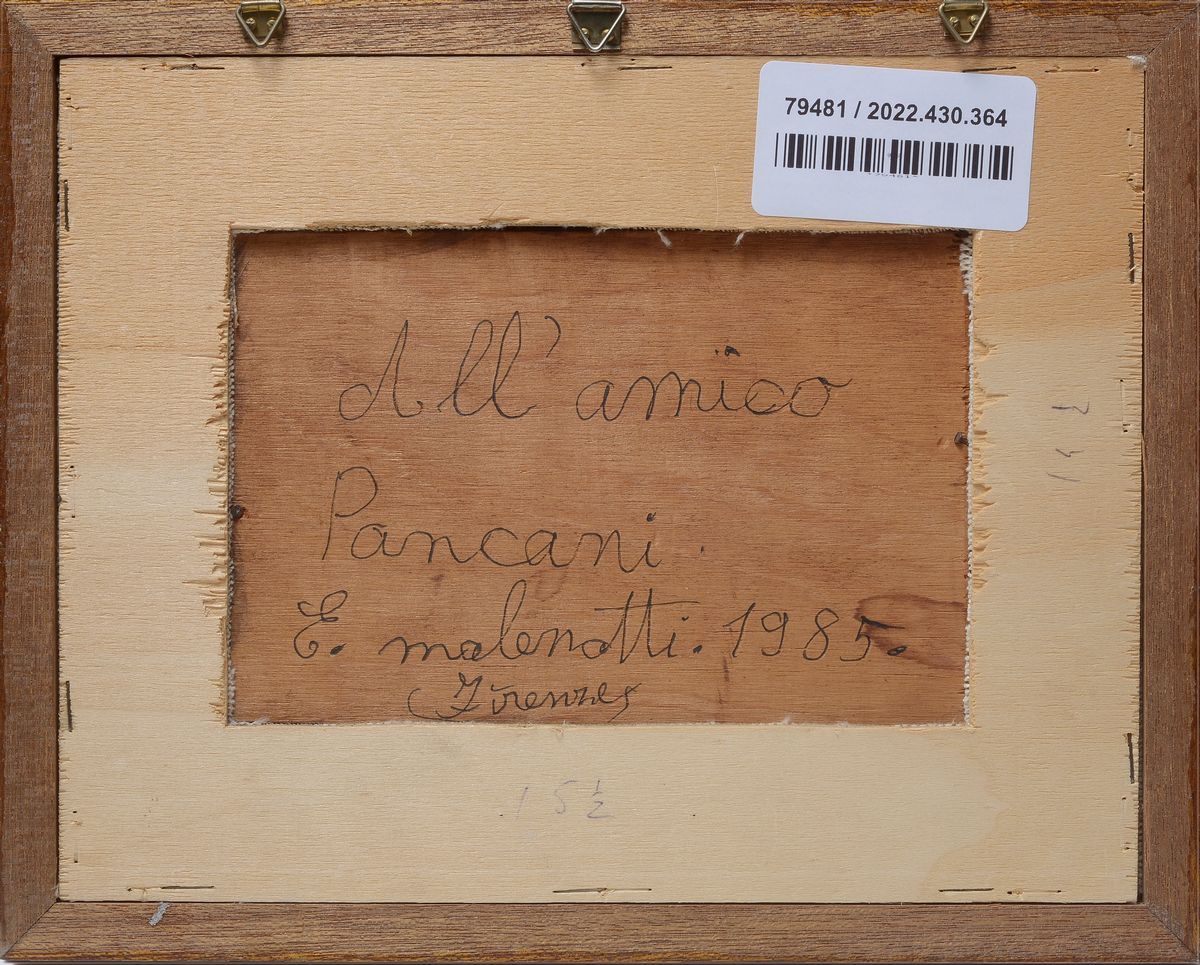 79481 / 2022.430.364
All' amico
Pancani.
E. malenotti. 1985.
(Firenze)
15 ½